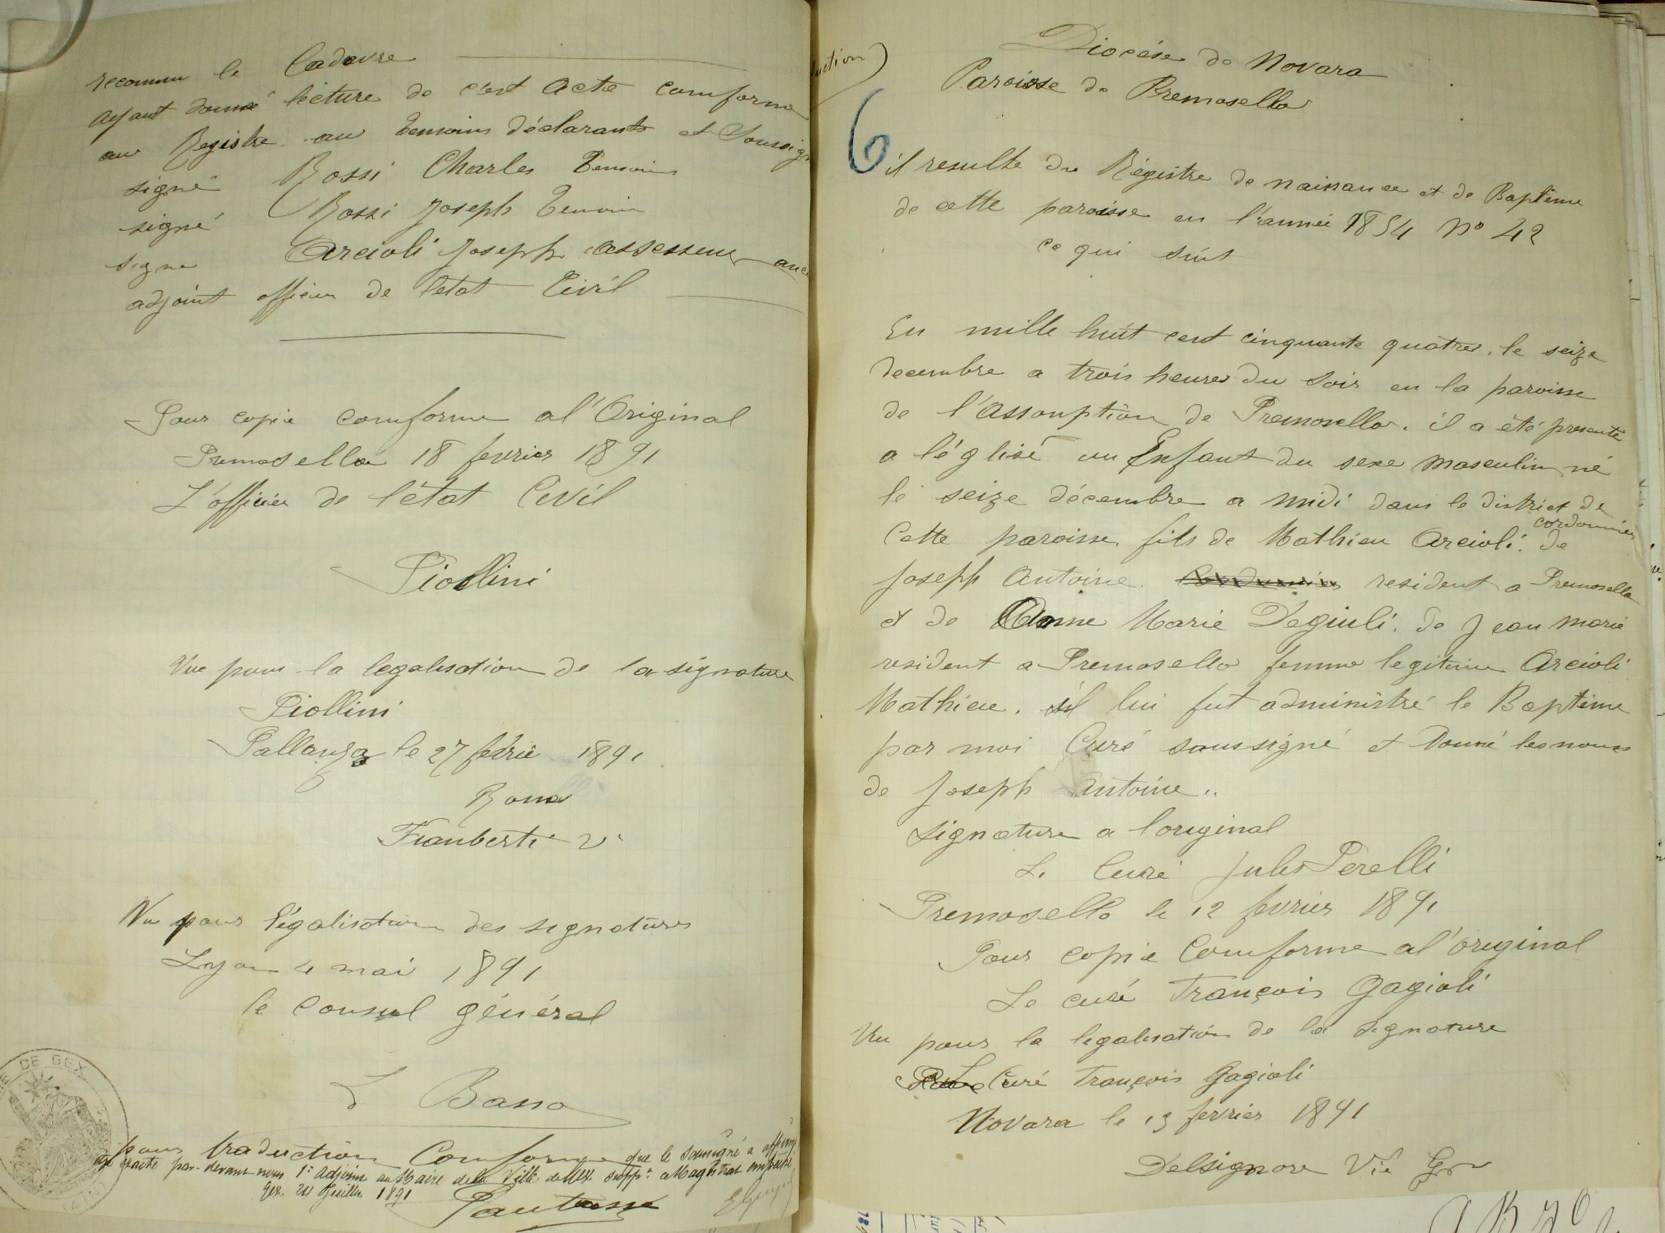 reconnu le Cadavre
ayant donné lecture de c'est acte comforme
au Registre au temoins déclarants et Sousig
signé Rossi Charles Temoins
signé Rossi Joseph Temoin
signe Arcioli Joseph assesseur anc
adjoint officier de l'etat Civil
Pour copie comforme a l'Original
Premosello 18 fevrier 1891
L'officier de l'état Civil
Piollini
Vue pour la legalisation de la signature
Piollini
Pallanza le 27 févrie 1891
Fianberti
Vu pour légalisation des signatures
Lyon 4 mai 1891
le Consul général
Basso
DE GEX
pour traduction Comforme que le soussigné a affirmé
par devant nous 1er adjoint au Maire de la Ville de Gex
Gex 1891
uction)
Diocése de Novara
Paroisse de Premosello
6
il resulte du Régistre de naissance et de Baptême
de cette paroisse en l'année 1854 No 42
ce qui suit
En mille huit cent cinquante quatre, le seize
decembre a trois heures du soir en la paroisse
de l'Assomption de Premosello. il a été presenté
a l'église un Enfant du sexe masculin né
le seize décembre a midi dans le district de
cordonnier
Cette paroisse fils de Mathieu Arcioli. de
Joseph Antoine resident a Premosello
et de Anne Marie Degiuli. de Jean marie
resident a Premosello femme legitime Arcioli
Mathieu. il lui fut administré le Baptême
par moi Curé soussigné et Donné les noms
de Joseph Antoine..
Signature a l'original
Le Curé Jules Perelli
Premosello le 12 fevrier 1891
Pour copie Comforme a l'original
Le curé François Gagioli
Vu pour la legalisation de la signature
Curé François Gagioli
Novara le 13 fevrier 1891
Delsignore